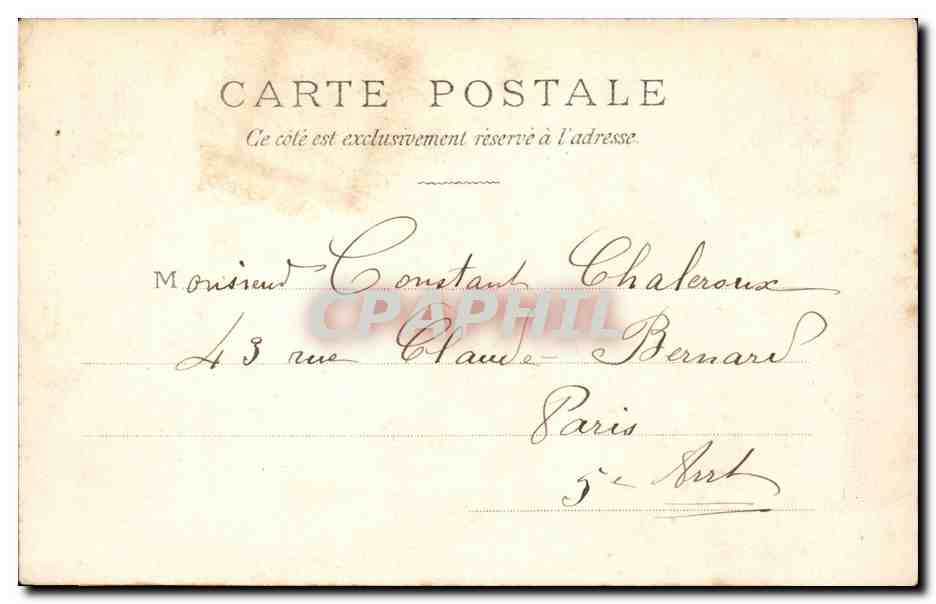 CARTE POSTALE
Ce côté est exclusivement réservé à l'adresse.
Monsieur Constant Chaleroux
CPAPHIL
43 rue Claude Bernard
Paris
5e Arrt